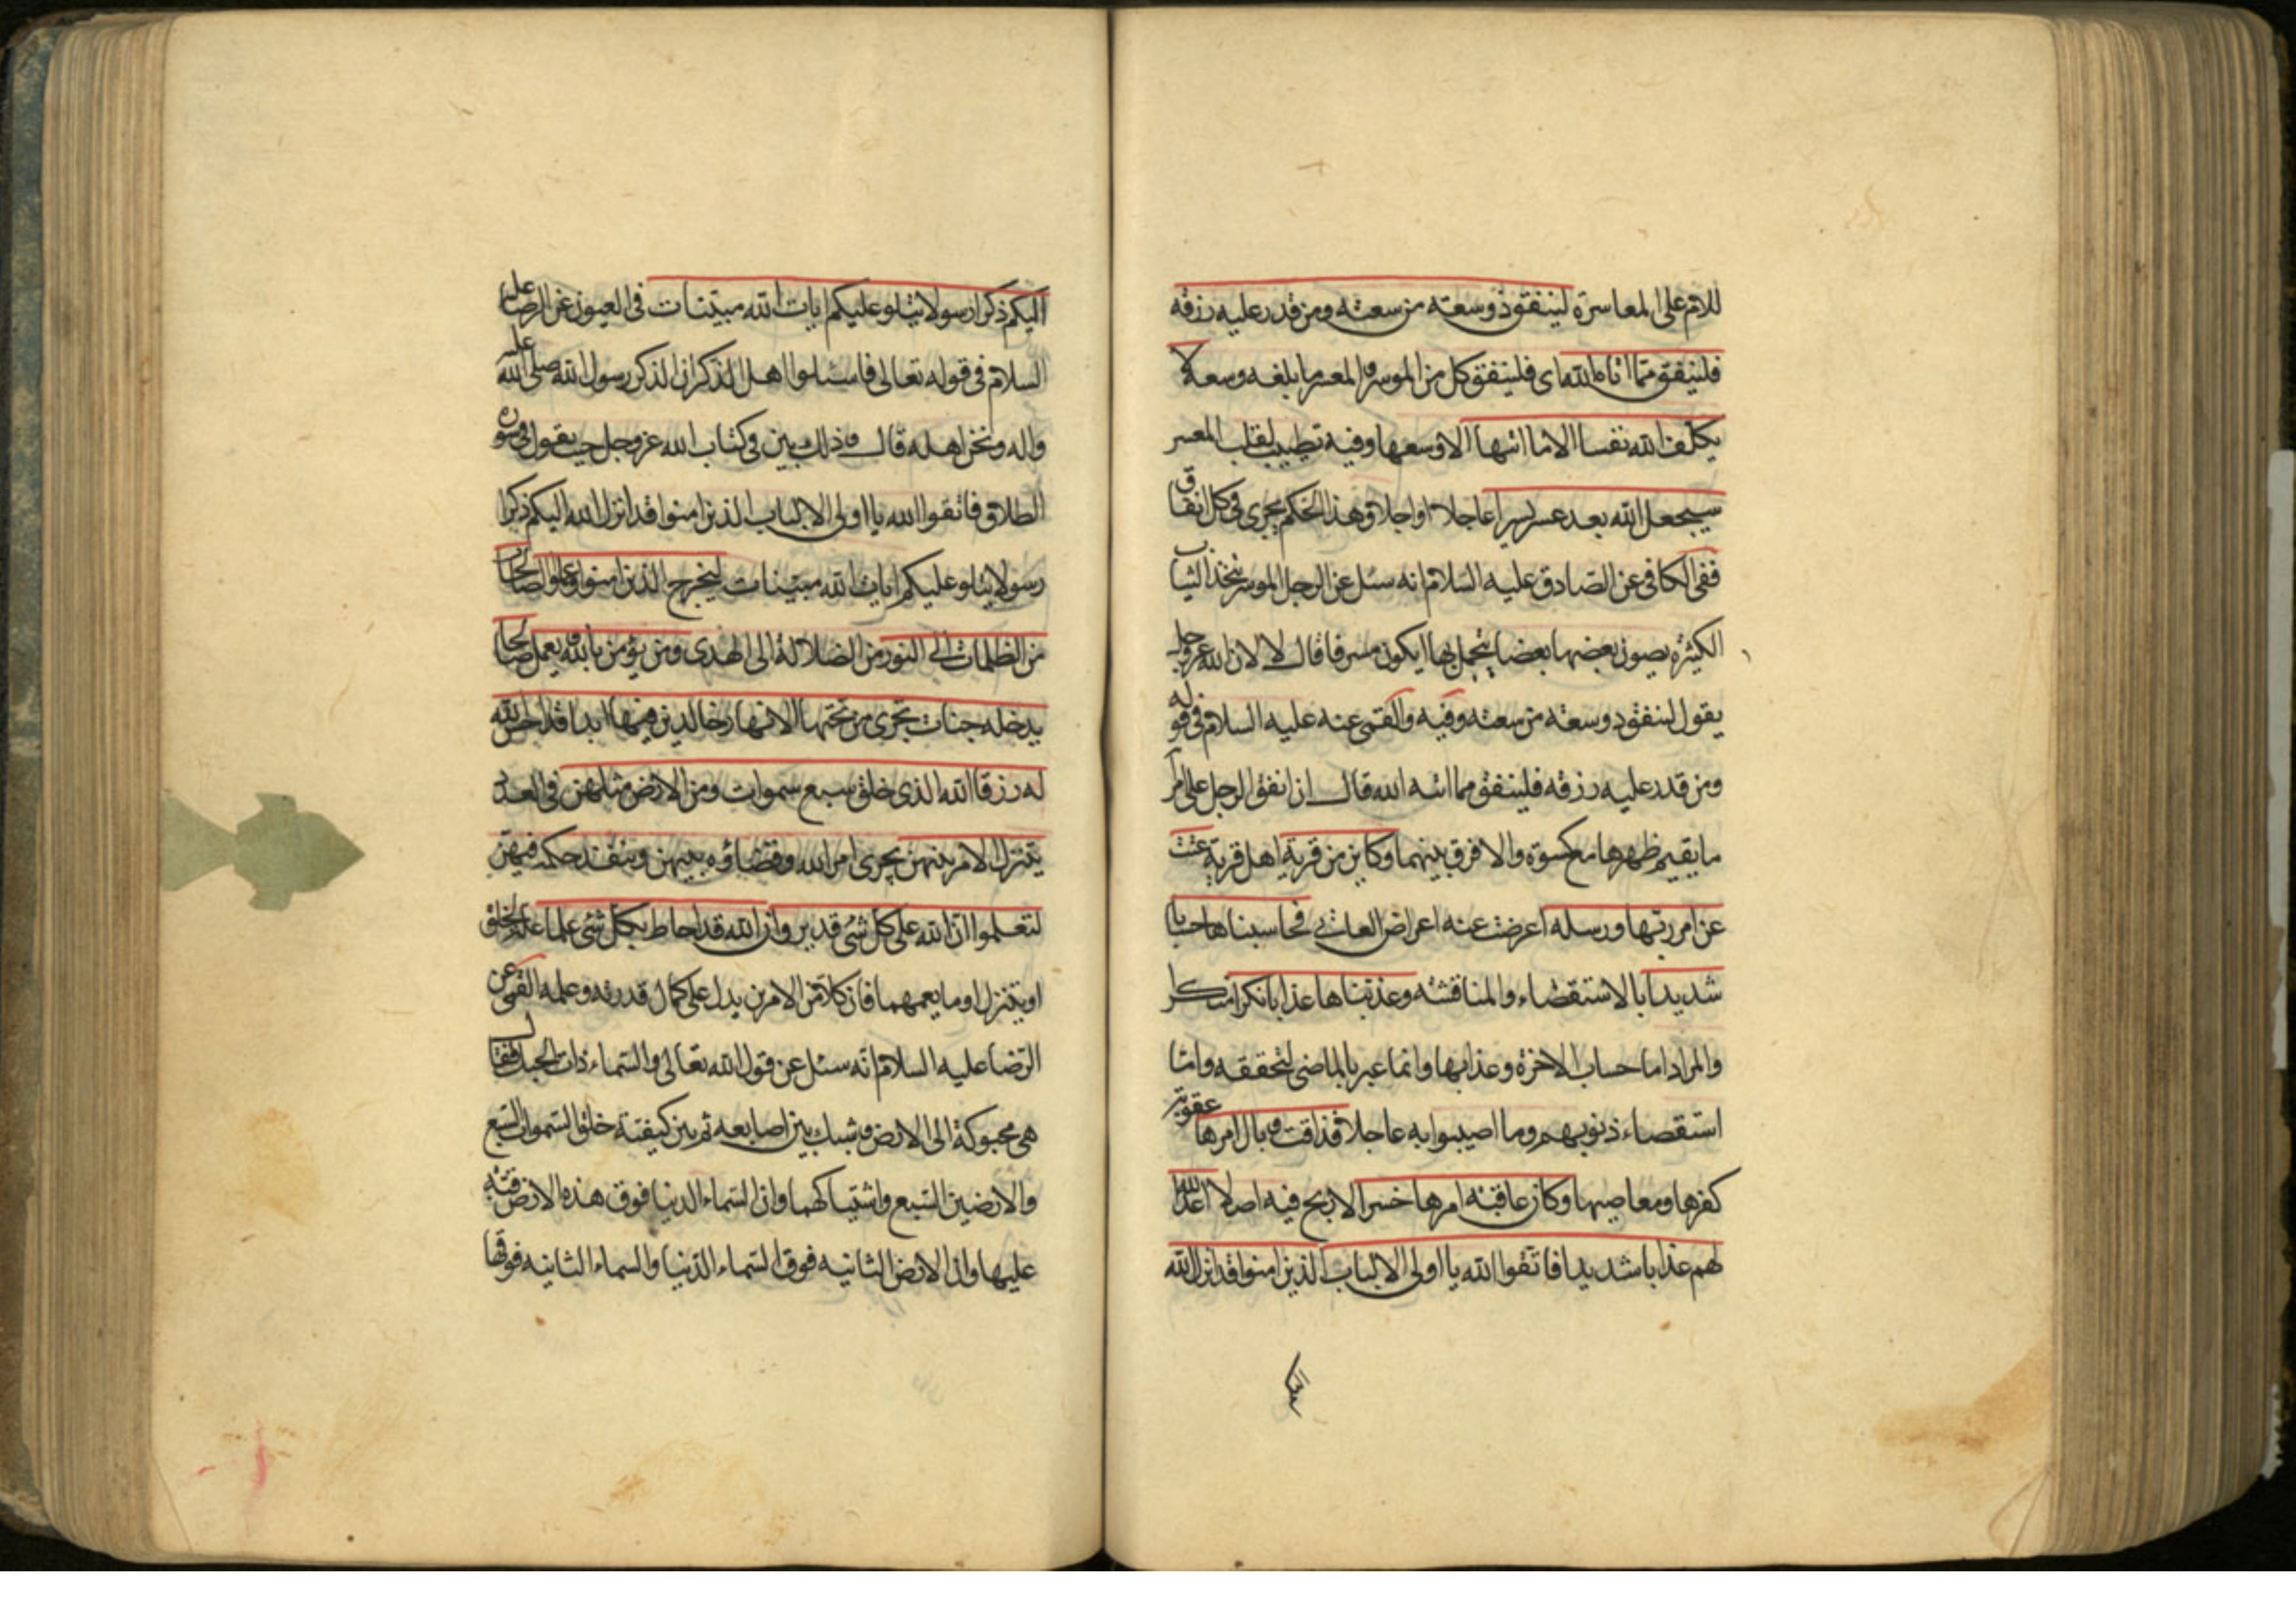 للام على المعاسرة لينفق ذو سعته من سعته ومن قدر عليه رزقه
فلينفق مما اتاه الله اى فلينفق كل من الموسر والمعسر ما بلغه وسعه لا
يكلف الله نفسا الا ما اتيها الا وسعها وفيه تطييب لقلب المعسر
سيجعل الله بعد عسر يسرا عاجلا او اجلا وهذا الحكم يجرى فى كل انفاق
ففى الكافى عن الصادق عليه السلام انه سئل عن الرجل الموسر يتخذ الثياب
الكثيرة يصون بعضها بعضا يتجمل بها ايكون مسرفا قال لا لان الله عز وجل
يقول لينفق ذو سعته من سعته وفيه والقمى عنه عليه السلام فى قوله
ومن قدر عليه رزقه فلينفق مما اتيه الله قال ان انفق الرجل على امرأ
ما يقيم ظهرها مع كسوة والا فرق بينهما وكاين من قرية اهل قرية عتت
عن امر ربها ورسله اعرضت عنه اعراض العاتى فحاسبناها حسابا
شديدا بالاستقصاء والمناقشه وعذبناها عذابا نكرا منكرا
والمراد اما حساب الاخرة وعذابها وانما عبر بالماضى لتحققه واما
استقصاء ذنوبهم وما اصيبوا به عاجلا فذاقت وبال امرها عقوبة
كفرها ومعاصيها وكان عاقبة امرها خسرا لا ربح فيه اصلا اعد الله
لهم عذابا شديدا فاتقوا الله يا اولى الالباب الذين امنوا قد انزل الله
اليكم ذكرا رسولا يتلو عليكم ايات الله مبينات فى العيون عن الرضا عليه
السلام فى قوله تعالى فاسئلوا اهل الذكر ان الذكر رسول الله صلى الله عليه
واله ونحن اهله قال وذلك بين فى كتاب الله عز وجل حيث يقول فى سورة
الطلاق فاتقوا الله يا اولى الالباب الذين امنوا قد انزل الله اليكم ذكرا
رسولا يتلو عليكم ايات الله مبينات ليخرج الذين امنوا وعملوا الصالحات
من الظلمات الى النور من الضلالة الى الهدى ومن يؤمن بالله ويعمل صالحا
يدخله جنات تجرى من تحتها الانهار خالدين فيها ابدا قد احسن الله
له رزقا الله الذى خلق سبع سموات ومن الارض مثلهن فى العدد
يتنزل الامر بينهن يجرى امر الله وقضاؤه بينهن وينفذ حكمه فيهن
لتعلموا ان الله على كل شئ قدير وان الله قد احاط بكل شئ علما علة لخلق
او يتنزل او ما يعمهما فان كلا من الامرين يدل على كمال قدرته وعلمه القمى عن
الرضا عليه السلام انه سئل عن قول الله تعالى والسماء ذات الحبك فقال
هى محبوكة الى الارض وشبك بين اصابعه ثم بين كيفية خلق السموات السبع
والارضين السبع واشتباكهما وان السماء الدنيا فوق هذه الارض قبة
عليها وان الارض الثانيه فوق السماء الدنيا والسماء الثانيه فوقها